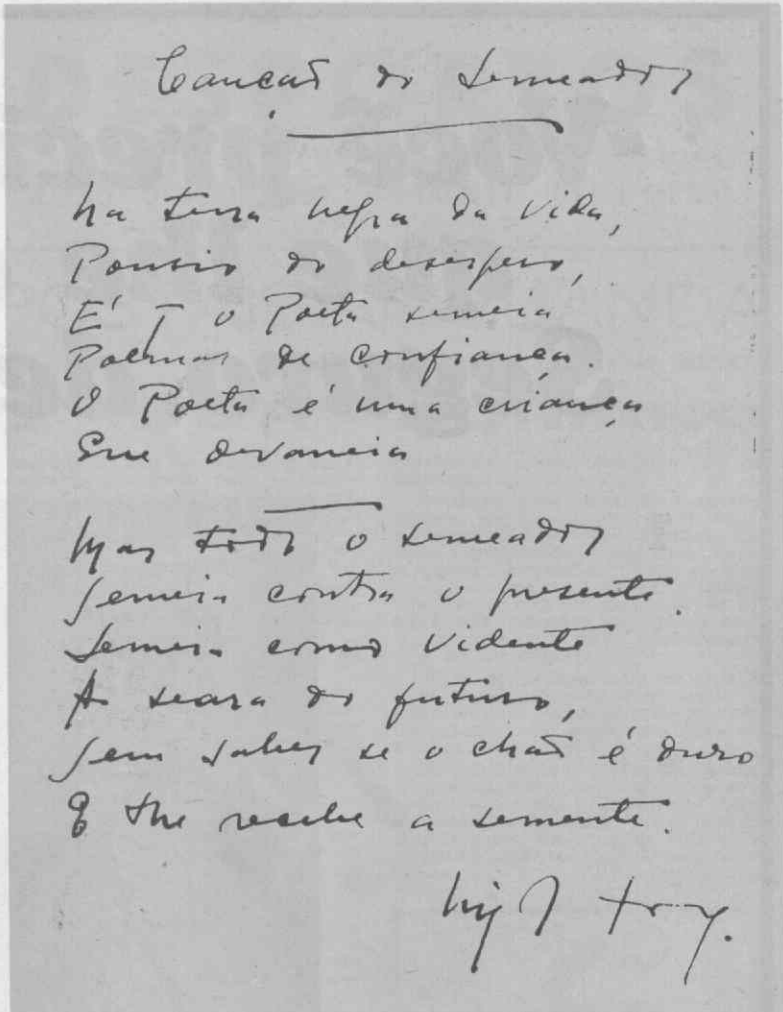 Canção do Semeador
Na terra negra da vida,
Pousio do desespero,
É q o Poeta semeia
Poemas de confiança.
O Poeta é uma criança
Que devaneia
Mas todo o semeador
Semeia contra o presente.
Semeia como vidente
A seara do futuro,
Sem saber se o chão é duro
E lhe recebe a semente.
Miguel Torga.